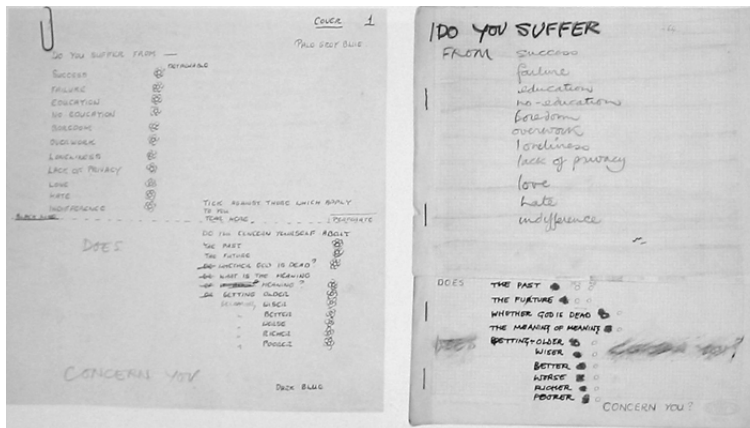 COVER 1
PALE GREY BLUE
DO YOU SUFFER FROM —
DETACHABLE
SUCCESS
FAILURE
EDUCATION
NO EDUCATION
BOREDOM
OVERWORK
LONELINESS
LACK OF PRIVACY
LOVE
HATE
INDIFFERENCE
TICK AGAINST THOSE WHICH APPLY
TO YOU
TEAR HERE
PERFORATE
DOES
DO YOU CONCERN YOURSELF ABOUT
THE PAST
THE FUTURE
WHETHER GOD IS DEAD?
WHAT IS THE MEANING
OF MEANING?
GETTING OLDER
WISER
" BETTER
" WORSE
" RICHER
" POORER
CONCERN YOU
DARK BLUE
DO YOU SUFFER
FROM success
failure
education
no-education
boredom
overwork
loneliness
lack of privacy
love
hate
indifference
DOES THE PAST
THE FUTURE
WHETHER GOD IS DEAD
THE MEANING OF MEANING
DOES GETTING OLDER
WISER
BETTER
WORSE
RICHER
POORER
CONCERN YOU?